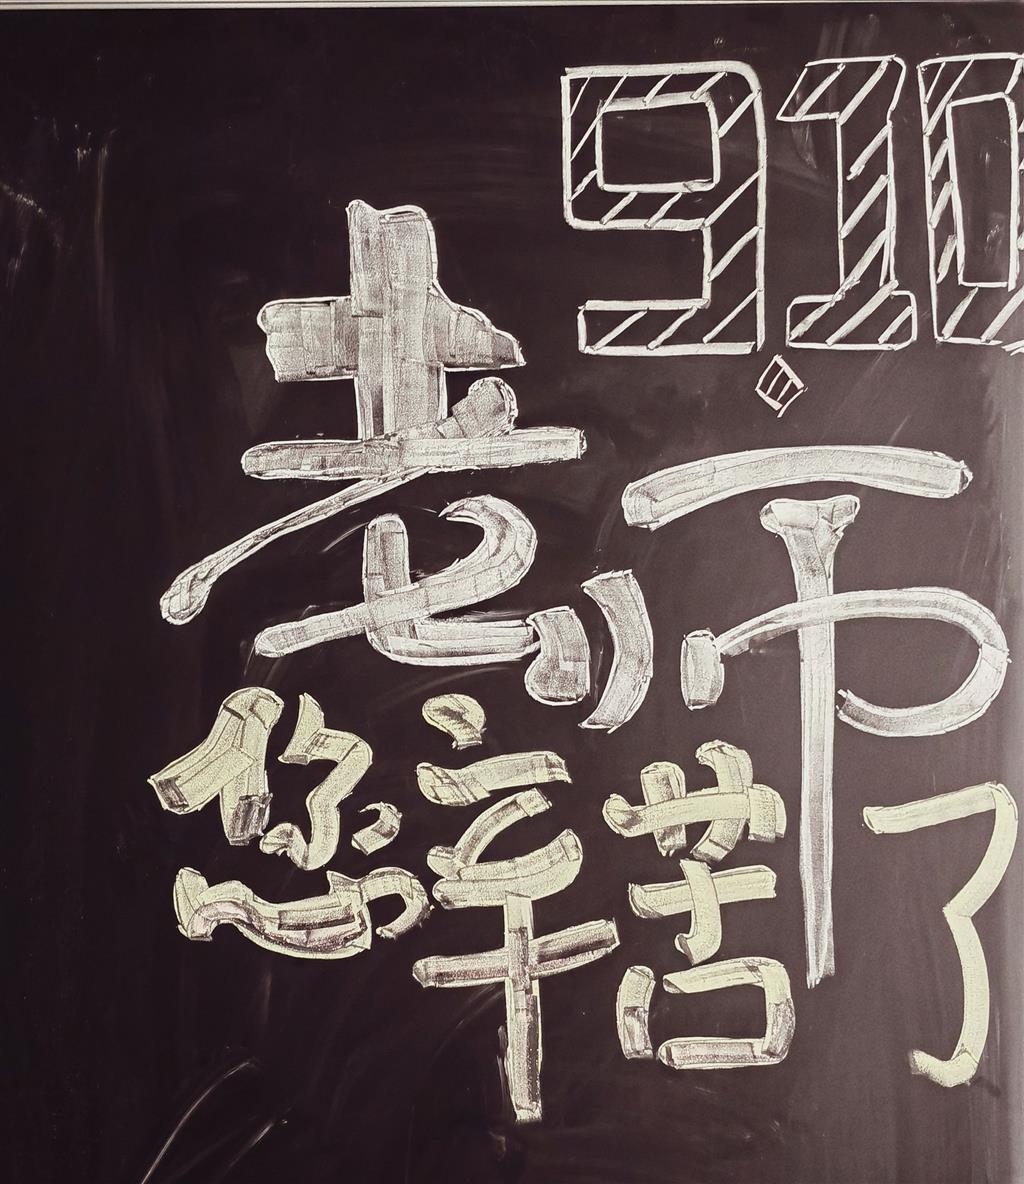 910
老师
您辛苦了